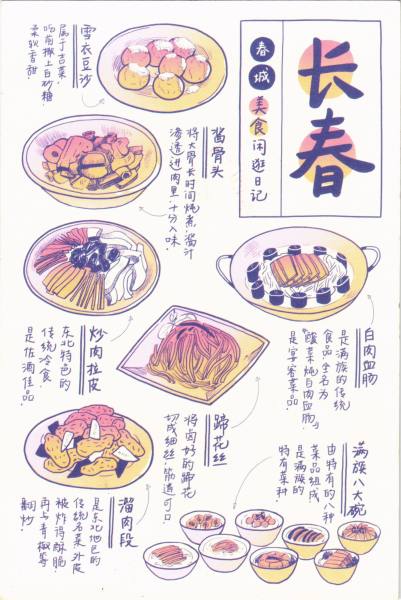 长春
春城
美食
闲逛日记
雪衣豆沙
属于吉菜,
吃前撒上白砂糖,
柔软香甜.
酱骨头
将大骨长时间炖煮,酱汁
渗透进肉里,十分入味.
炒肉拉皮
东北特色的
传统冷食
是佐酒佳品.
白肉血肠
是满族的传统
食品.全名为
"酸菜炖白肉血肠"
是宴客菜品.
蹄花丝
将卤好的蹄花
切成细丝,筋道可口.
溜肉段
是东北地区的
传统名菜外皮
被炸得酥脆.
再与青椒等
翻炒.
满族八大碗
由特有的八种
菜品组成.
是满族的
特有菜种